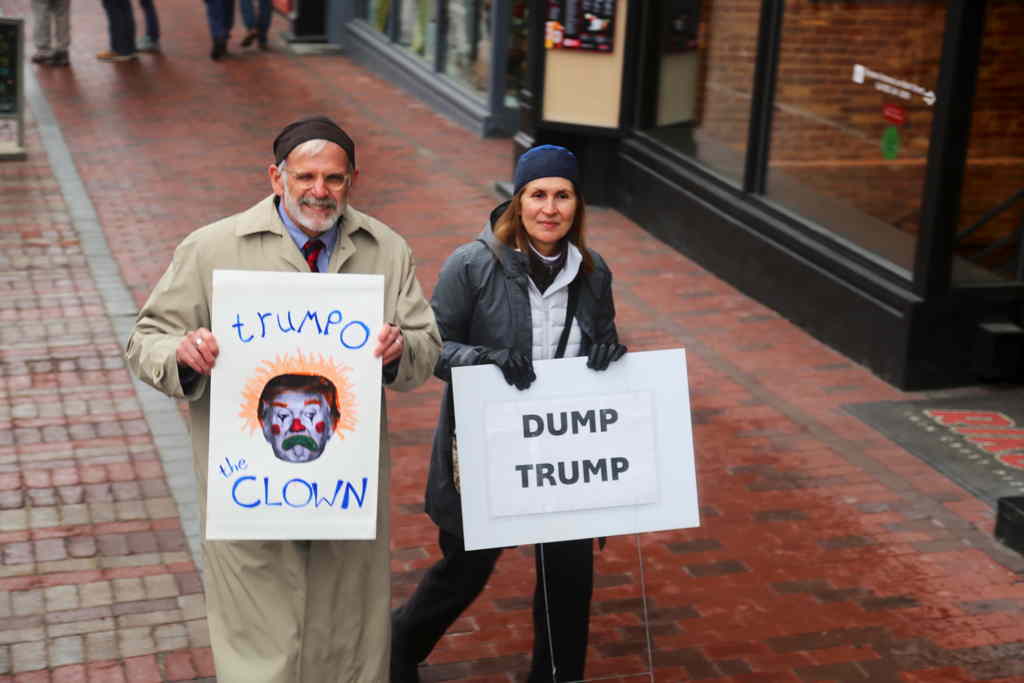 trumpo
the
CLOWN
DUMP
TRUMP